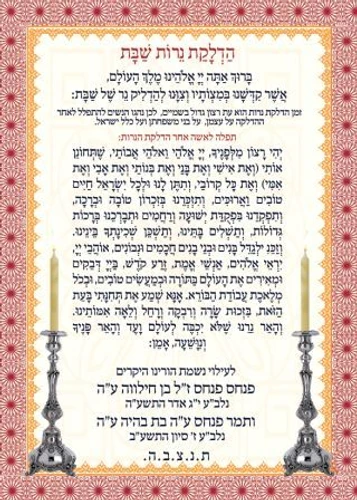 הַדְלָקַת נֵרוֹת שַׁבָּת
בָּרוּךְ אַתָּה יְיָ אֱלֹהֵינוּ מֶלֶךְ הָעוֹלָם,
אֲשֶׁר קִדְּשָׁנוּ בְּמִצְוֹתָיו וְצִוָּנוּ לְהַדְלִיק נֵר שֶׁל שַׁבָּת:
זמן הדלקת נרות הוא עת רצון גדול בשמיים, לכן נהגו הנשים להתפלל לאחר
ההדלקה על עצמן, על בני משפחתן ועל כלל ישראל.
תפלה לאשה אחר הדלקת הנרות:
יְהִי רָצוֹן מִלְּפָנֶיךָ, יְיָ אֱלֹהַי וֵאלֹהֵי אֲבוֹתַי, שֶׁתְּחוֹנֵן
אוֹתִי (וְאֶת אִישִׁי וְאֶת בָּנַי וְאֶת בְּנוֹתַי וְאֶת אָבִי וְאֶת
אִמִּי) וְאֶת כָּל קְרוֹבַי, וְתִתֶּן לָנוּ וּלְכָל יִשְׂרָאֵל חַיִּים
טוֹבִים וַאֲרוּכִים, וְתִזְכְּרֵנוּ בְּזִכְרוֹן טוֹבָה וּבְרָכָה,
וְתִפְקְדֵנוּ בִּפְקֻדַּת יְשׁוּעָה וְרַחֲמִים וּתְבָרְכֵנוּ בְּרָכוֹת
גְּדוֹלוֹת, וְתַשְׁלִים בָּתֵּינוּ, וְתַשְׁכֵּן שְׁכִינָתְךָ בֵּינֵינוּ.
וְזַכֵּנִי לְגַדֵּל בָּנִים וּבְנֵי בָנִים חֲכָמִים וּנְבוֹנִים, אוֹהֲבֵי יְיָ,
יִרְאֵי אֱלֹהִים, אַנְשֵׁי אֱמֶת, זֶרַע קֹדֶשׁ, בַּייָ דְּבֵקִים
וּמְאִירִים אֶת הָעוֹלָם בַּתּוֹרָה וּבְמַעֲשִׂים טוֹבִים, וּבְכָל
מְלֶאכֶת עֲבוֹדַת הַבּוֹרֵא. אָנָּא שְׁמַע אֶת תְּחִנָּתִי בָּעֵת
הַזֹּאת, בִּזְכוּת שָׂרָה וְרִבְקָה וְרָחֵל וְלֵאָה אִמּוֹתֵינוּ,
וְהָאֵר נֵרֵנוּ שֶׁלֹּא יִכְבֶּה לְעוֹלָם וָעֶד וְהָאֵר פָּנֶיךָ
וְנִוָּשֵׁעָה, אָמֵן:
לעילוי נשמת הורינו היקרים
פנחס פנחס ז"ל בן חילווה ע"ה
נלב"ע י"ג אדר התשע"ה
ותמר פנחס ע"ה בת בהיה ע"ה
נלב"ע ז' סיון התשע"ב
ת.נ.צ.ב.ה.